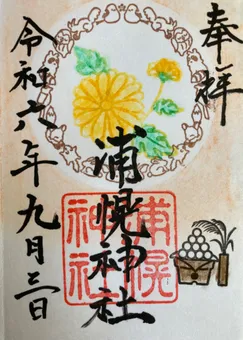 奉拝
浦幌神社
浦幌
神社
令和六年九月三日